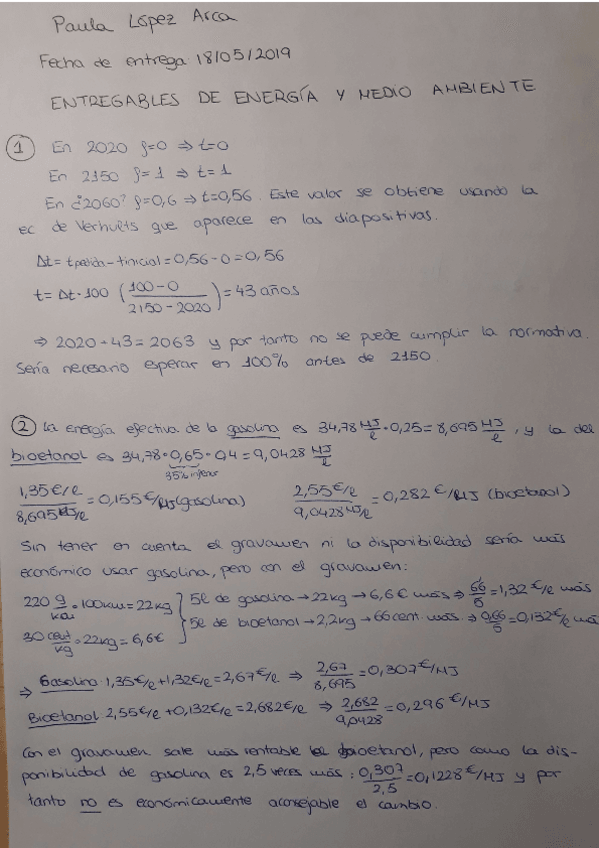 Paula López Arca
Fecha de entrega 18/05/2019
ENTREGABLES DE ENERGÍA Y MEDIO AMBIENTE
① En 2020 ρ=0 ⇒ t=0
En 2150 ρ=1 ⇒ t=1
En ¿2060? ρ=0,6 ⇒ t=0,56. Este valor se obtiene usando la
ec de Verhults que aparece en las diapositivas.
Δt = tpedida - tinicial = 0,56 - 0 = 0,56
t = Δt · 100 (100-0 / 2150-2020) = 43 años
⇒ 2020+43 = 2063 y por tanto no se puede cumplir la normativa.
Sería necesario esperar en 100% antes de 2150.
② La energía efectiva de la gasolina es 34,78 MJ/l · 0,25 = 8,695 MJ/l, y la del
bioetanol es 34,78 · 0,65 · 0,4 = 9,0428 MJ/l
35% inferior
1,35 €/l / 8,695 MJ/l = 0,155 €/MJ (gasolina) 2,55 €/l / 9,0428 MJ/l = 0,282 €/MJ (bioetanol)
Sin tener en cuenta el gravamen ni la disponibilidad sería más
económico usar gasolina, pero con el gravamen:
220 g/km · 100km = 22kg } 5l de gasolina → 22kg → 6,6€ más ⇒ 6,6/5 = 1,32 €/l más
30 cent/kg · 22kg = 6,6€ } 5l de bioetanol → 2,2kg → 66 cent. más ⇒ 0,66/5 = 0,132 €/l má
⇒ Gasolina 1,35€/l + 1,32€/l = 2,67€/l ⇒ 2,67/8,695 = 0,307 €/MJ
Bioetanol 2,55€/l + 0,132€/l = 2,682€/l ⇒ 2,682/9,0428 = 0,296 €/MJ
Con el gravamen sale más rentable el bioetanol, pero como la dis-
ponibilidad de gasolina es 2,5 veces más: 0,307/2,5 = 0,1228 €/MJ y por
tanto no es económicamente aconsejable el cambio.